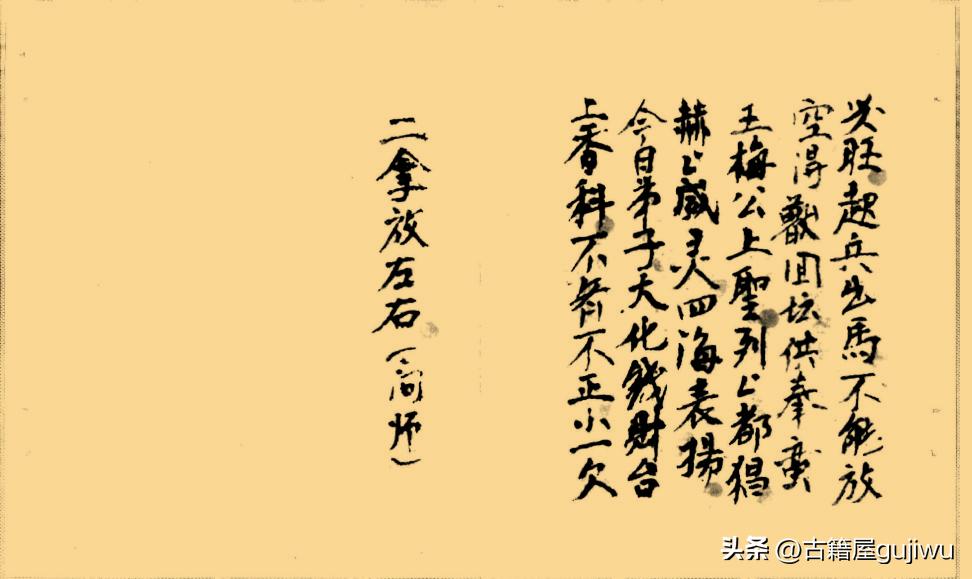 旺起兵出馬不能放
空淂回坛供奉蛮
王梅公上聖列〻都猖
赫〻威灵四海表揚
今日弟子大化錢財台
上香科不齐不正小一欠
二拿放左右(师)
头条 @古籍屋gujiwu